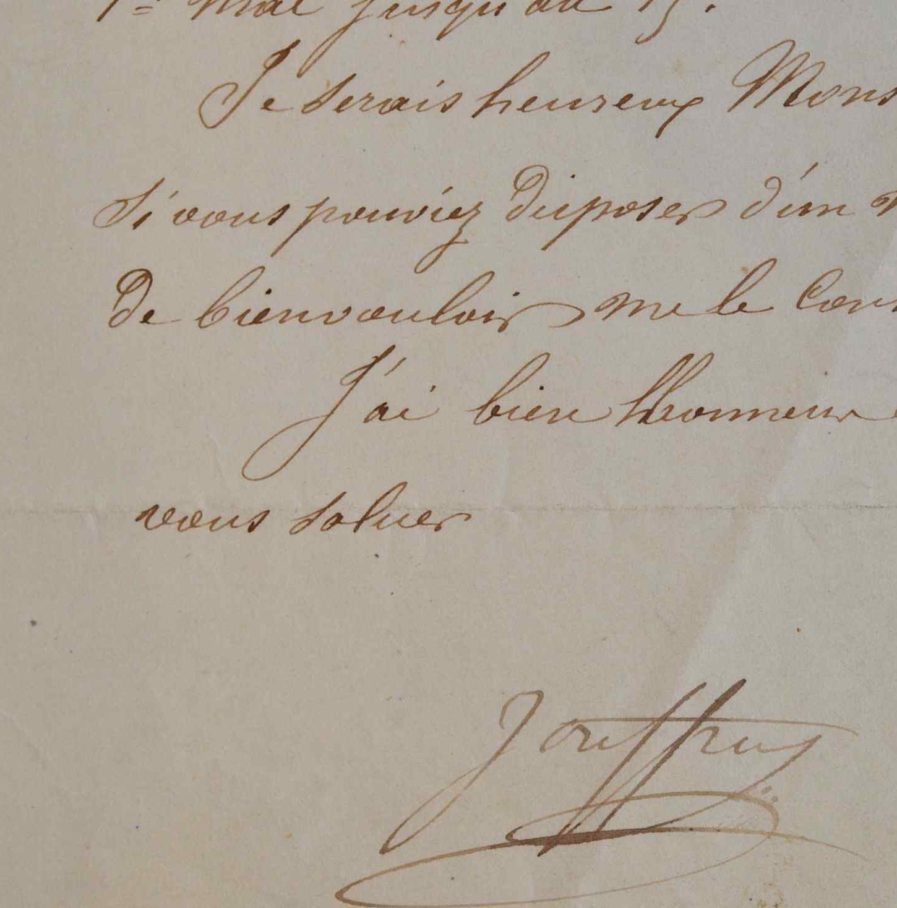 1er Mai jusqu'au 15.
Je serais heureux Mons
si vous pouviez disposer d'un
de bien vouloir me le con
J'ai bien l'honneur
vous saluer
Jouffruy